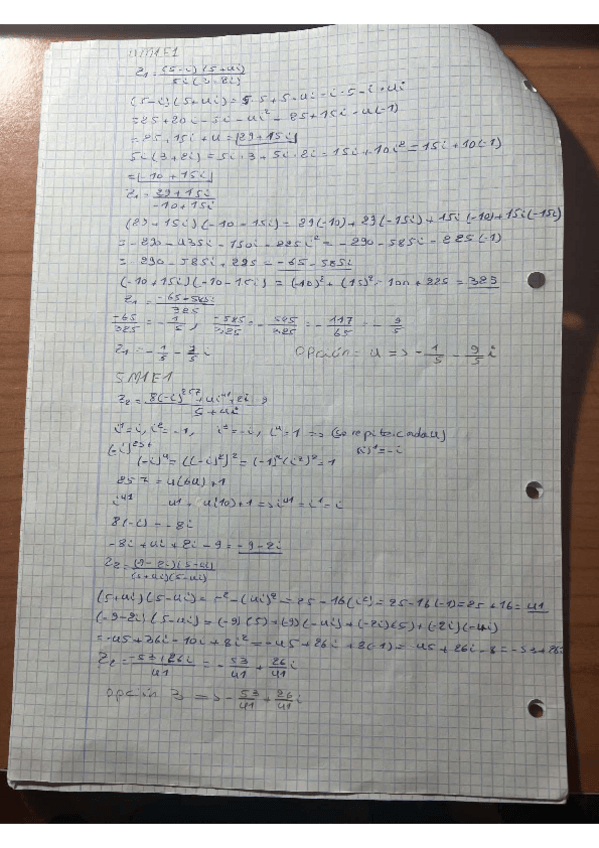 4M1E1
Z1 = (5-i)(5+4i) / 5i(3+2i)
(5-i)(5+4i) = 5·5+5·4i-i·5-i·4i
= 25+20i-5i-4i²-25+15i-4(-1)
= 25+15i+4=29+15i
5i(3+2i) = 5i·3+5i·2i = 15i+10i² = 15i+10(-1)
= -10+15i
Z1 = 29+15i / -10+15i
(29+15i)(-10-15i) = 29(-10)+29(-15i)+15i(-10)+15i(-15i)
= -290-435i-150i-225i² = -290-585i-225(-1)
= -290-585i+225 = -65-585i
(-10+15i)(-10-15i) = (-10)²+(15)² = 100+225 = 325
Z1 = -65-585i / 325
-65/325 = -1/5, -585/325 = -585/325 = -117/65 = -9/5
Z1 = -1/5 - 9/5 i
Opción = 4 => -1/5 - 9/5 i
5M1E1
Z2 = 8(-i)²⁵⁷+4i⁴¹+2i-9 / 5+4i
i¹=i, i²=-1, i³=-i, i⁴=1 => (se repite cada 4)
(-i)²⁵⁶
(-i)¹=-i
(-i)⁴ = ((-i)²)² = (-1)²(i²)² = 1
257 = 4(64)+1
i⁴¹ 41 = 4(10)+1 => i⁴¹=i¹=i
8(-i) = -8i
-8i+4i+2i-9 = -9-2i
Z2 = (-9-2i)(5-4i) / (5+4i)(5-4i)
(5+4i)(5-4i) = 5²-(4i)² = 25-16(i²) = 25-16(-1) = 25+16 = 41
(-9-2i)(5-4i) = (-9)(5)+(-9)(-4i)+(-2i)(5)+(-2i)(-4i)
= -45+36i-10i+8i² = -45+26i+8(-1) = -45+26i-8 = -53+26i
Z2 = -53+26i / 41 = -53/41 + 26/41 i
Opción 3 => -53/41 + 26/41 i